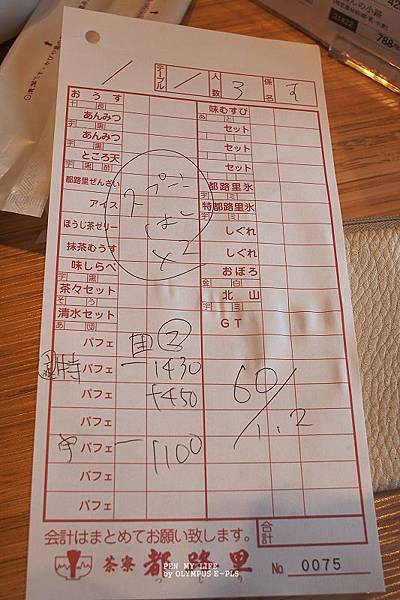 テーブル 人数 3 係名 す
おうす
十 長
あんみつ
宇 黒
あんみつ
宇 黒
ところ天
宇 黒 酢
都路里ぜんざい
アイス
ほうじ茶ゼリー
抹茶むうす
味しらべ
宇 黒
茶々セット
そ う
清水セット
あ
パフェ
パフェ 一 1430
パフェ +450
パフェ
パフェ 一 1100
パフェ
パフェ
味むすび
あ と
セット
セット
セット
都路里氷
宇 ミ
特都路里氷
宇 ミ
しぐれ
しぐれ
おぼろ
金 白
北山
宇 ミ
GT
スプーン
はし
×2
田 ②
60/1.2
会計はまとめてお願い致します。
合計
茶寮 都路里
No 0075
PEN MY LIFE
by OLYMPUS E-PL5
788